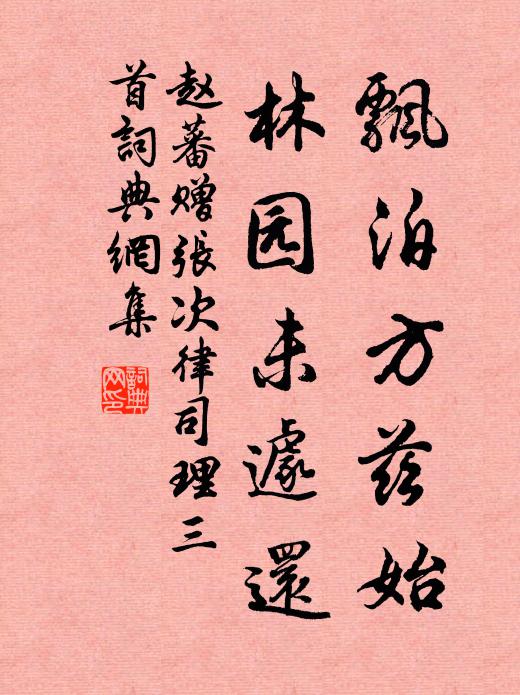 飄泊方兹始
林园未遽還
赵蕃赠張次律司理三
首詞典網集
詞典
网印